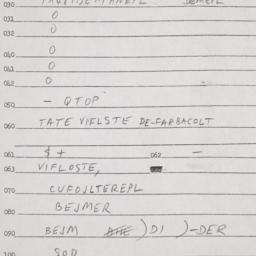 030
031 0
032 0
040 0
041 0
042 0 -
050 - QTOP
060 TATE VIFLSTE DE-FABBACOLT
061 $ + 062 -
063 VIFLOSTE,
070 CUFOJLTEREPL
080 BEJMER
090 BEJM )DI )-DER
100 SOD